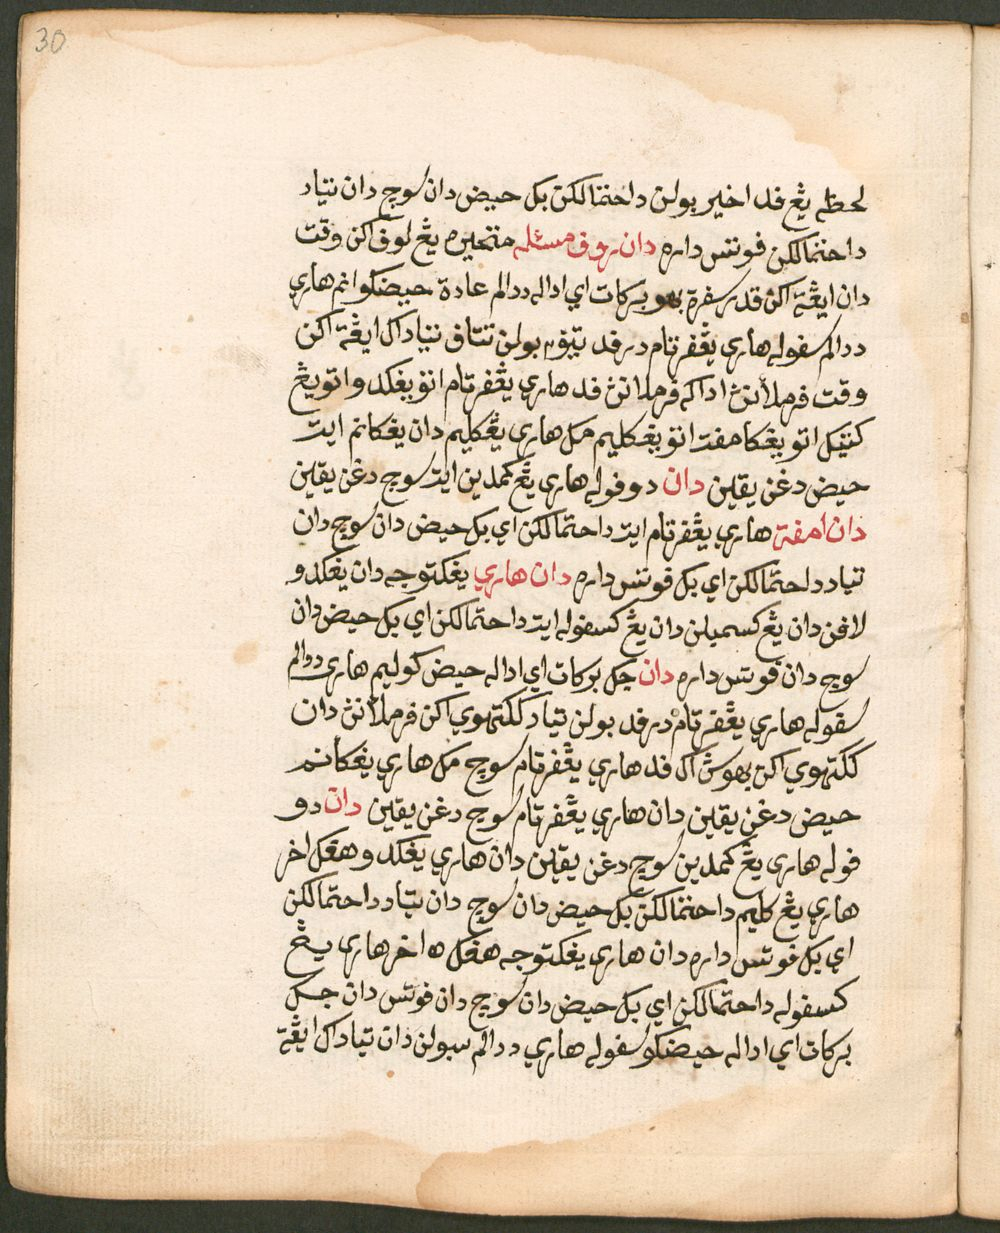 30
لحظه يڠ فد اخير بولن داحتمالكن بكل حيض دان سوچ دان تياد
داحتمالكن فوتس داره دان روف مسئله متحيره يڠ لوف اكن وقت
دان ايڠة اكن قدر سفرة بهو بركات اي اداله ددالم عادة حيضكو انم هاري
ددالم سفوله هاري يڠفرتام درفد تيڤ٢ بولن تتاف تياداك ايڠة اكن
وقت فرملأنڽ اداكه فرملأنڽ فد هاري يڠفرتام اتو يڠكدوا تو يڠ
كتيڬ اتو يڠكامفت اتو يڠكليم مك هاري يڠكليم دان يڠكانم ايت
حيض دڠن يقين دان دوفوله هاري يڠ كمدين ايت سوچ دڠن يقين
دان امفة هاري يڠفرتام ايت داحتمالكن اي بكل حيض دان سوچ دان
تياد داحتمالكن اي بكل فوتس داره دان هاري يڠكتوجه دان يڠكدو
لافن دان يڠ كسمبيلن دان يڠ كسفوله ايت داحتمالكن اي بكل حيض دان
سوچ دان فوتس داره دان جك بركات اي اداله حيضكو ليم هاري ددالم
سفوله هاري يڠفرتام درفد بولن تياد ككتهوي اكن فرملأنڽ دان
ككتهوي اكن بهوسڽ اك فد هاري يڠفرتام سوچ مك هاري يڠكانم
حيض دڠن يقين دان هاري يڠفرتام سوچ دڠن يقين دان دو
فوله هاري يڠ كمدين سوچ دڠن يقين دان هاري يڠكدو هڠك اخر
هاري يڠ كليم داحتمالكن بكل حيض دان سوچ دان تياد داحتمالكن
اي بكل فوتس داره دان هاري يڠكتوجه هڠك اخر هاري يڠ
كسفوله داحتمالكن اي بكل حيض دان سوچ دان فوتس دان جك
بركات اي اداله حيضكو سفوله هاري ددالم سبولن دان تياداك ايڠة